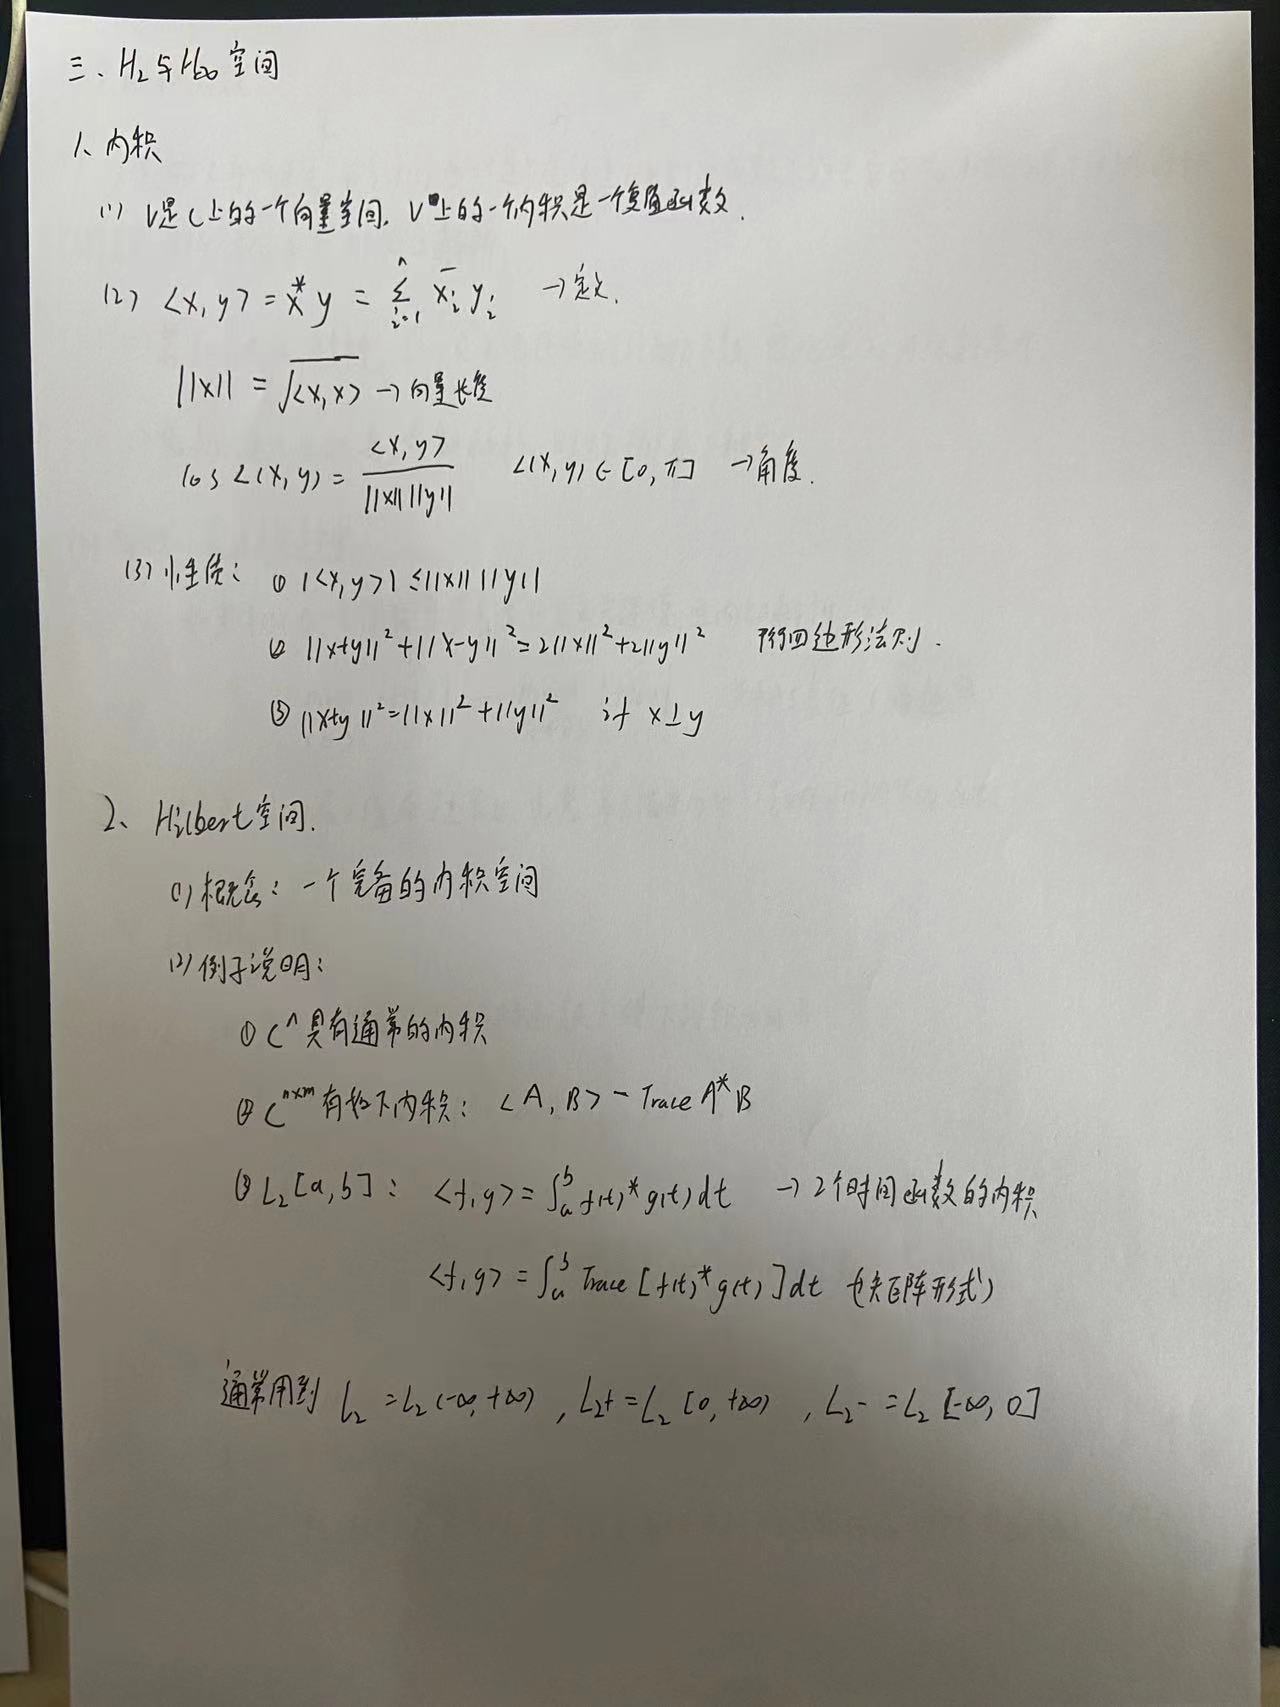 三、H₂与H∞空间
1、内积
(1) V是C上的一个向量空间. V上的一个内积是一个复值函数.
(2) <x,y> = x*y = Σⁿᵢ₌₁ x̄ᵢ yᵢ → 定义.
||x|| = √<x,x> → 向量长度
cos∠(x,y) = <x,y> / ||x|| ||y||  ∠(x,y) ∈ [0,π] → 角度.
(3) 性质: ① |<x,y>| ≤ ||x|| ||y||
② ||x+y||² + ||x-y||² = 2||x||² + 2||y||² 平行四边形法则.
③ ||x+y||² = ||x||² + ||y||² if x⊥y
2、Hilbert空间.
(1) 概念: 一个完备的内积空间
(2) 例子说明:
① Cⁿ 具有通常的内积
② Cⁿˣᵐ 有如下内积: <A,B> = Trace A*B
③ L₂[a,b]: <f,g> = ∫ₐᵇ f(t)*g(t)dt → 2个时间函数的内积
<f,g> = ∫ₐᵇ Trace[f(t)*g(t)]dt (矩阵形式)
通常用到 L₂ = L₂(-∞,+∞), L₂+ = L₂[0,+∞), L₂- = L₂[-∞,0]